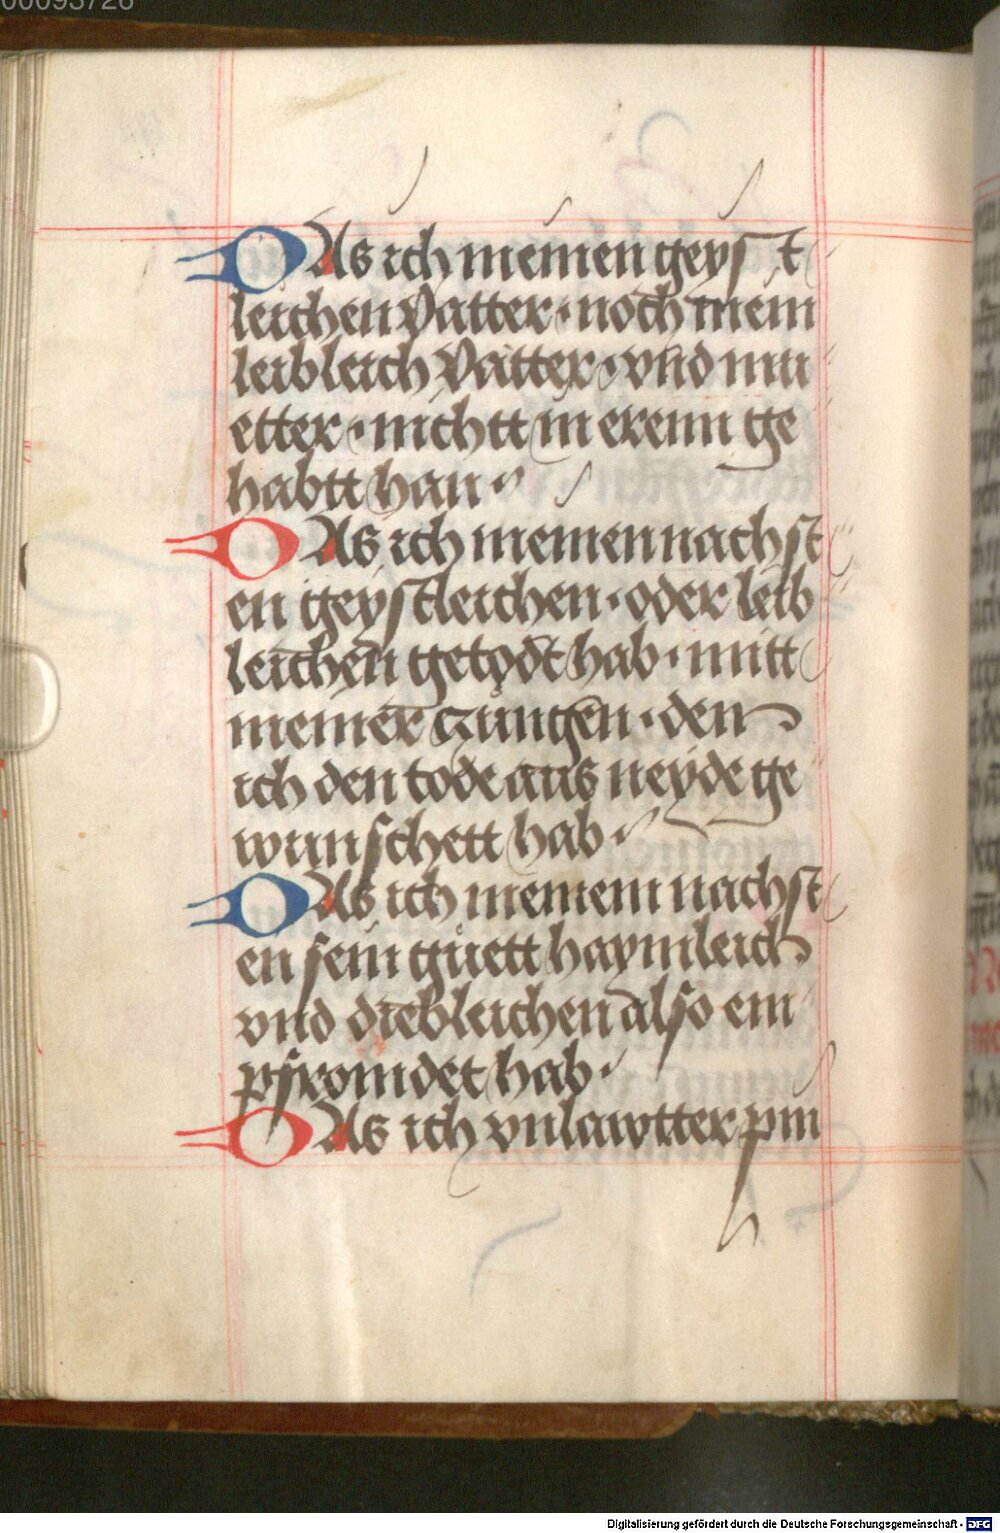 00093728
DAs ich meinen geyst
leichen Vatter · noch mein
leibleich Vatter · vnd mu
etter · nichtt in erenn ge
habtt han ·
DAs ich meinen nachst
en geystleichen · oder leib
leichen getődt hab · mitt
meiner czungen · den
ich den tode aus neyde ge
wunschett hab ·
DAs ich meinem nachst
en sein guett haymleich
vnd diebleichen also em
pfromdet hab ·
DAs ich vnlawtter pin
Digitalisierung gefördert durch die Deutsche Forschungsgemeinschaft - DFG